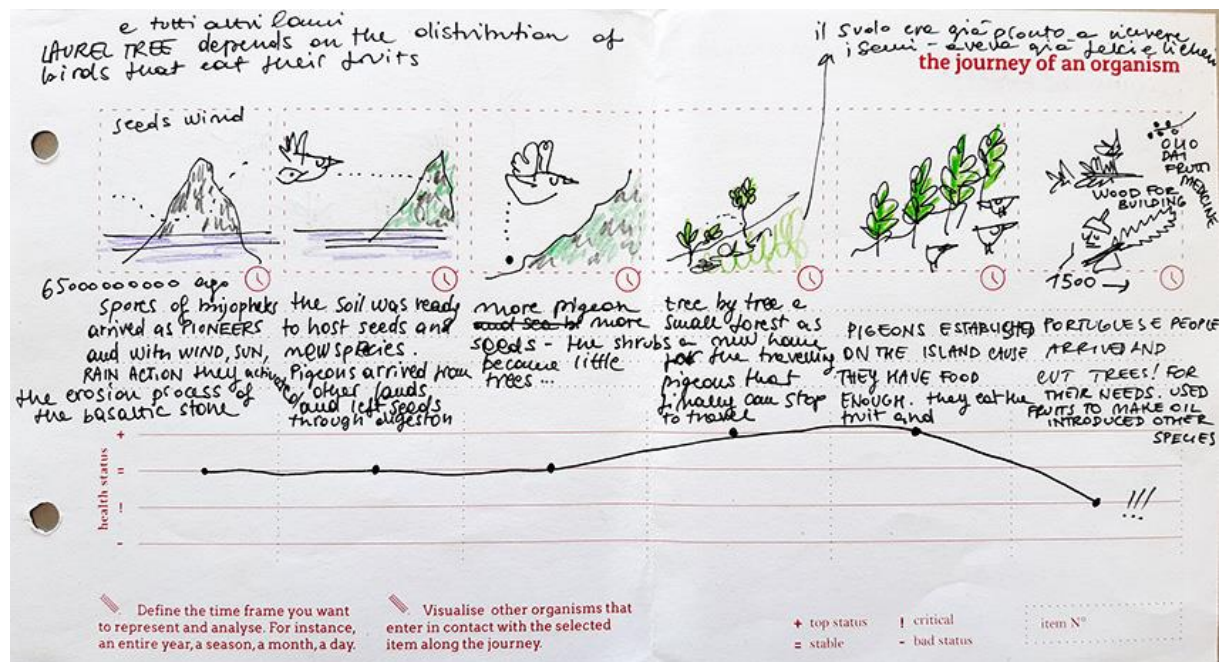 e tutti altri lauri
LAUREL TREE depends on the distribution of
birds that eat their fruits
il suolo era già pronto a ricevere
i semi - aveva già felci e licheni
the journey of an organism
seeds wind
OLIO
DAI
FRUTTI
MEDICINE
WOOD FOR
BUILDING
1500 →
65000000000 ago
spores of briophets
arrived as PIONEERS
and with WIND, SUN,
RAIN ACTION they activate
the erosion process of
the basaltic stone
the soil was ready
to host seeds and
new species.
Pigeons arrived from
other lands
and left seeds
through digestion
more pigeon
more
seeds - the shrubs
because little
trees...
tree by tree a
small forest as
a new home
for the travelling
pigeons that
finally can stop
to travel
PIGEONS ESTABLISHED
ON THE ISLAND CAUSE
THEY HAVE FOOD
ENOUGH. they eat the
fruit and
PORTUGUESE PEOPLE
ARRIVED AND
CUT TREES! FOR
THEIR NEEDS. USED
FRUITS TO MAKE OIL
INTRODUCED OTHER
SPECIES
health status
+
=
!
-
!!!
Define the time frame you want
to represent and analyse. For instance,
an entire year, a season, a month, a day.
Visualise other organisms that
enter in contact with the selected
item along the journey.
+ top status
= stable
! critical
- bad status
item N°